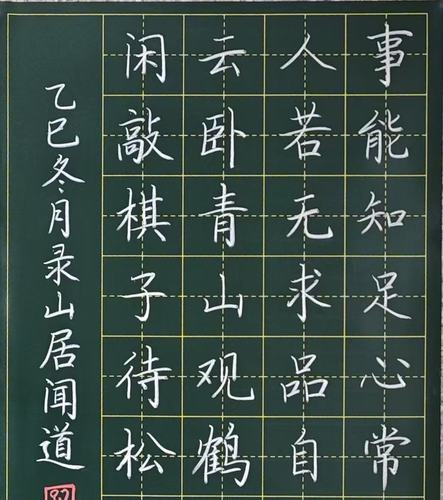 事能知足心常
人若无求品自
云卧青山观鹤
闲敲棋子待松
乙巳冬月录山居闻道